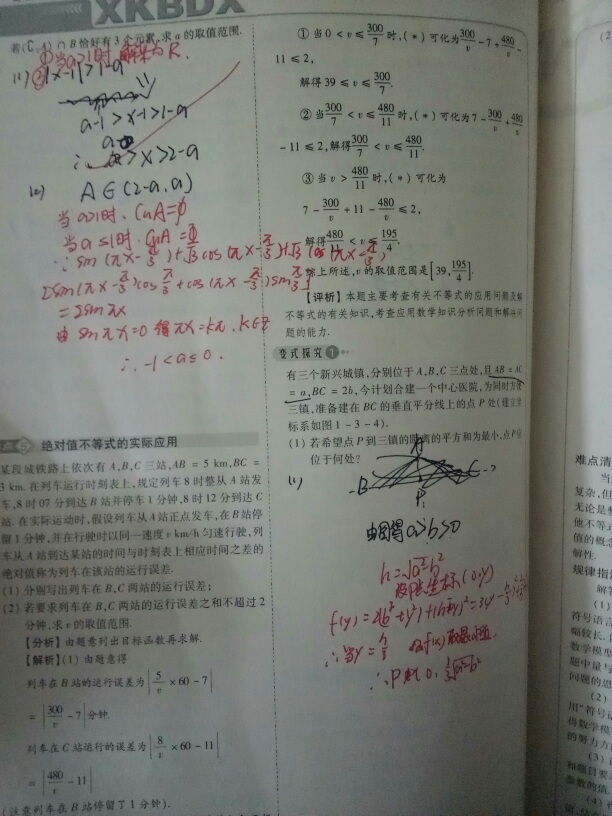 XKBDX
若(∁ᵤA)∩B恰好有3个元素,求a的取值范围.
①当a>1时 解集为R.
(1) ②|x-1|>1-a
a-1>x-1>1-a
∴ a>x>2-a
(2) A∈(2-a,a)
当a>1时. CuA=ϕ
当a≤1时. CuA=
∵ sin(πx-π/3)+√3cos(πx-π/3)
2[sin(πx-π/3)cosπ/3+cos(πx-π/3)sinπ/3]
=2sinπx
由 sinπx=0 得πx=kπ. k∈Z
∴ -1<a≤0.
绝对值不等式的实际应用
某段城铁路上依次有A,B,C三站,AB=5 km,BC=
3 km.在列车运行时刻表上,规定列车8时整从A站发
车,8时07分到达B站并停车1分钟,8时12分到达C
站.在实际运动时,假设列车从A站正点发车,在B站停
留1分钟,并在行驶时以同一速度v km/h匀速行驶,列
车从A站到达某站的时间与时刻表上相应时间之差的
绝对值称为列车在该站的运行误差.
(1)分别写出列车在B,C两站的运行误差;
(2)若要求列车在B,C两站的运行误差之和不超过2
分钟,求v的取值范围.
【分析】由题意列出目标函数再求解.
【解析】(1)由题意得
列车在B站的运行误差为|5/v×60-7|
=|300/v-7|分钟.
列车在C站运行的误差为|8/v×60-11|
=|480/v-11|
(注意列车在B站停留了1分钟).
①当0<v≤300/7时,(*)可化为300/v-7+480/v-
11≤2,
解得39≤v≤300/7.
②当300/7<v≤480/11时,(*)可化为7-300/v+480/v
-11≤2,解得300/7<v≤480/11.
③当v>480/11时,(*)可化为
7-300/v+11-480/v≤2,
解得480/11<v≤195/4.
综上所述,v的取值范围是[39,195/4].
【评析】本题主要考查有关不等式的应用问题及解
不等式的有关知识,考查应用数学知识分析问题和解决问
题的能力.
变式探究1
有三个新兴城镇,分别位于A,B,C三点处,且AB=AC
=a,BC=2b,今计划合建一个中心医院,为同时方便
三镇,准备建在BC的垂直平分线上的点P处(建立坐
标系如图1-3-4).
(1)若希望点P到三镇的距离的平方和为最小,点P应
位于何处?
(1)
A
B
C
P
由图得a>b>0
h=√a²-b²
设P坐标(0,y)
f(y)=2(b²+y²)+(h-y)²=3(y-
∴当y=h/3 时f(x)取最小值.
∴P
难点清
当
复杂,但
无论是
他不等
值的概念
解性.
规律指
解答
(1)
符号语
幅较长,
数学模型
题中量与
问题的思
(2)
用"符号语
得数学模
的努力方
(3)
和题目要
参数的值
(4)